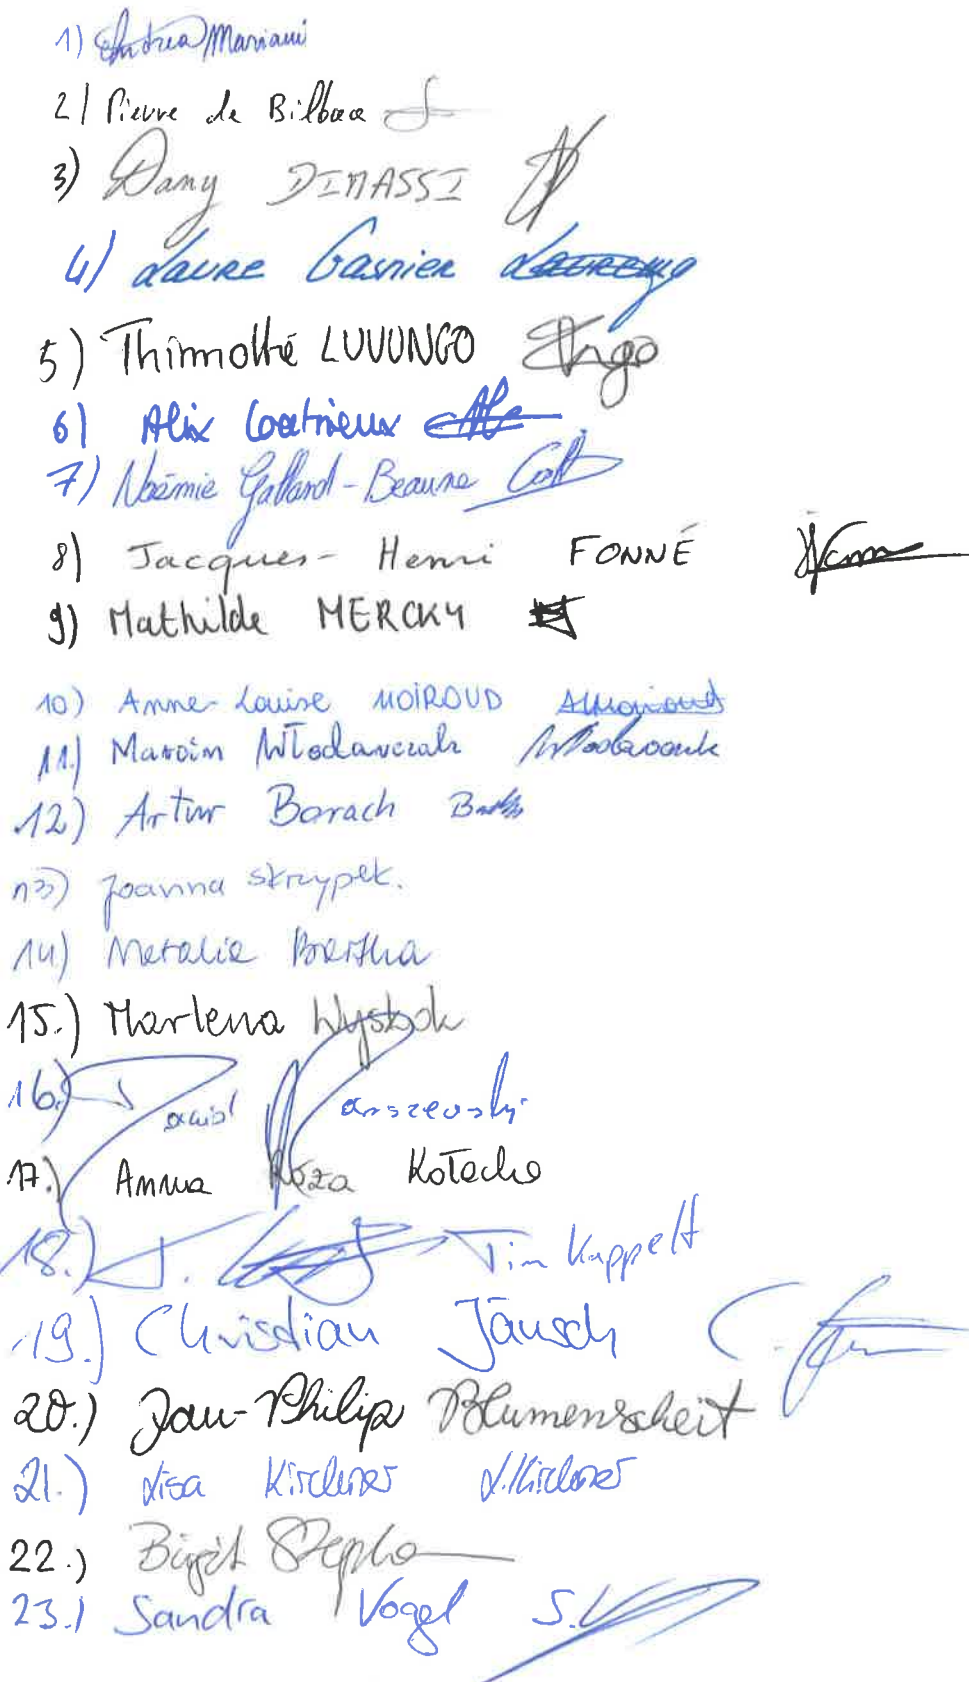 1) Andrea Mariani
2) Pierre de Bilbao
3) Dany DIMASSI
4) Laure Gasnier
5) Thimothé LUVUNGO
6) Alix
7) Noémie Galland-Beaune
8) Jacques-Henri FONNÉ
9) Mathilde MERCKY
10) Anne-Louise MOIROUD
11.) Marcin Włodarczak
12) Artur Barach
13) Joanna Skrzypek.
14) Natalia
15.) Marlena Wysłok
16.) Dawid
17.) Anna Róża Kołacho
18.) Tim Kuppelt
19.) Christian Jäusch
20.) Jan-Philip Blumenscheit
21.) Lisa Kirchner L. Kirchner
22.) Birgit
23.) Sandra Vogel S.V